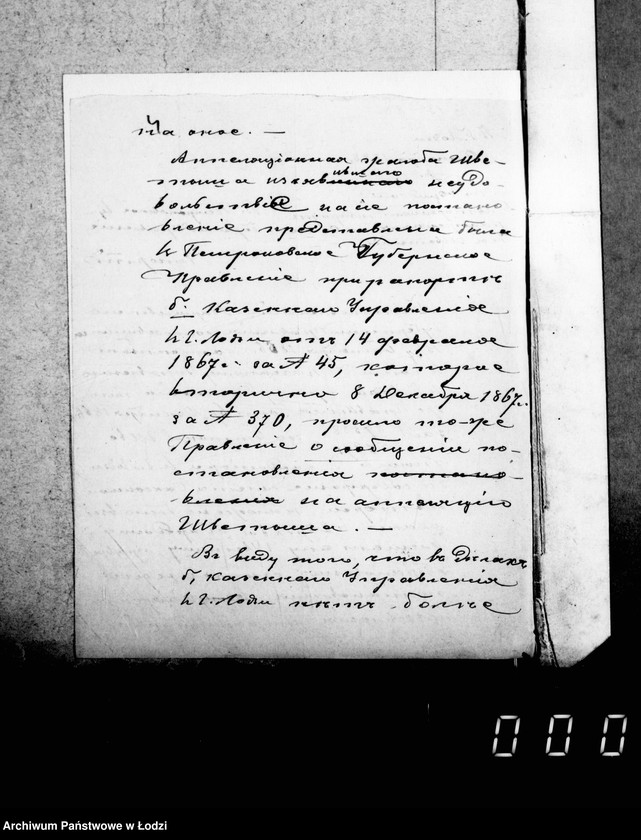 на оное. —
Аппеляціонная жалоба Шве-
тыша изъявившаго неудо-
вольствіе на сіе постано-
вленіе представлена была
въ Петроковское Губернское
Правленіе при рапортѣ
б. Казеннаго Управленія
въ г. Лодзи отъ 14 февраля
1867 г. за № 45, которое
вторично 8 Декабря 1867 г.
за № 370, просило то-же
Правленіе о сообщеніи по-
становленія постано-
вленія на аппеляцію
Шветыша. —
Въ виду того, что въ дѣлахъ
б. Казеннаго Управленія
въ г. Лодзи нѣтъ болѣе
000
Archiwum Państwowe w Łodzi